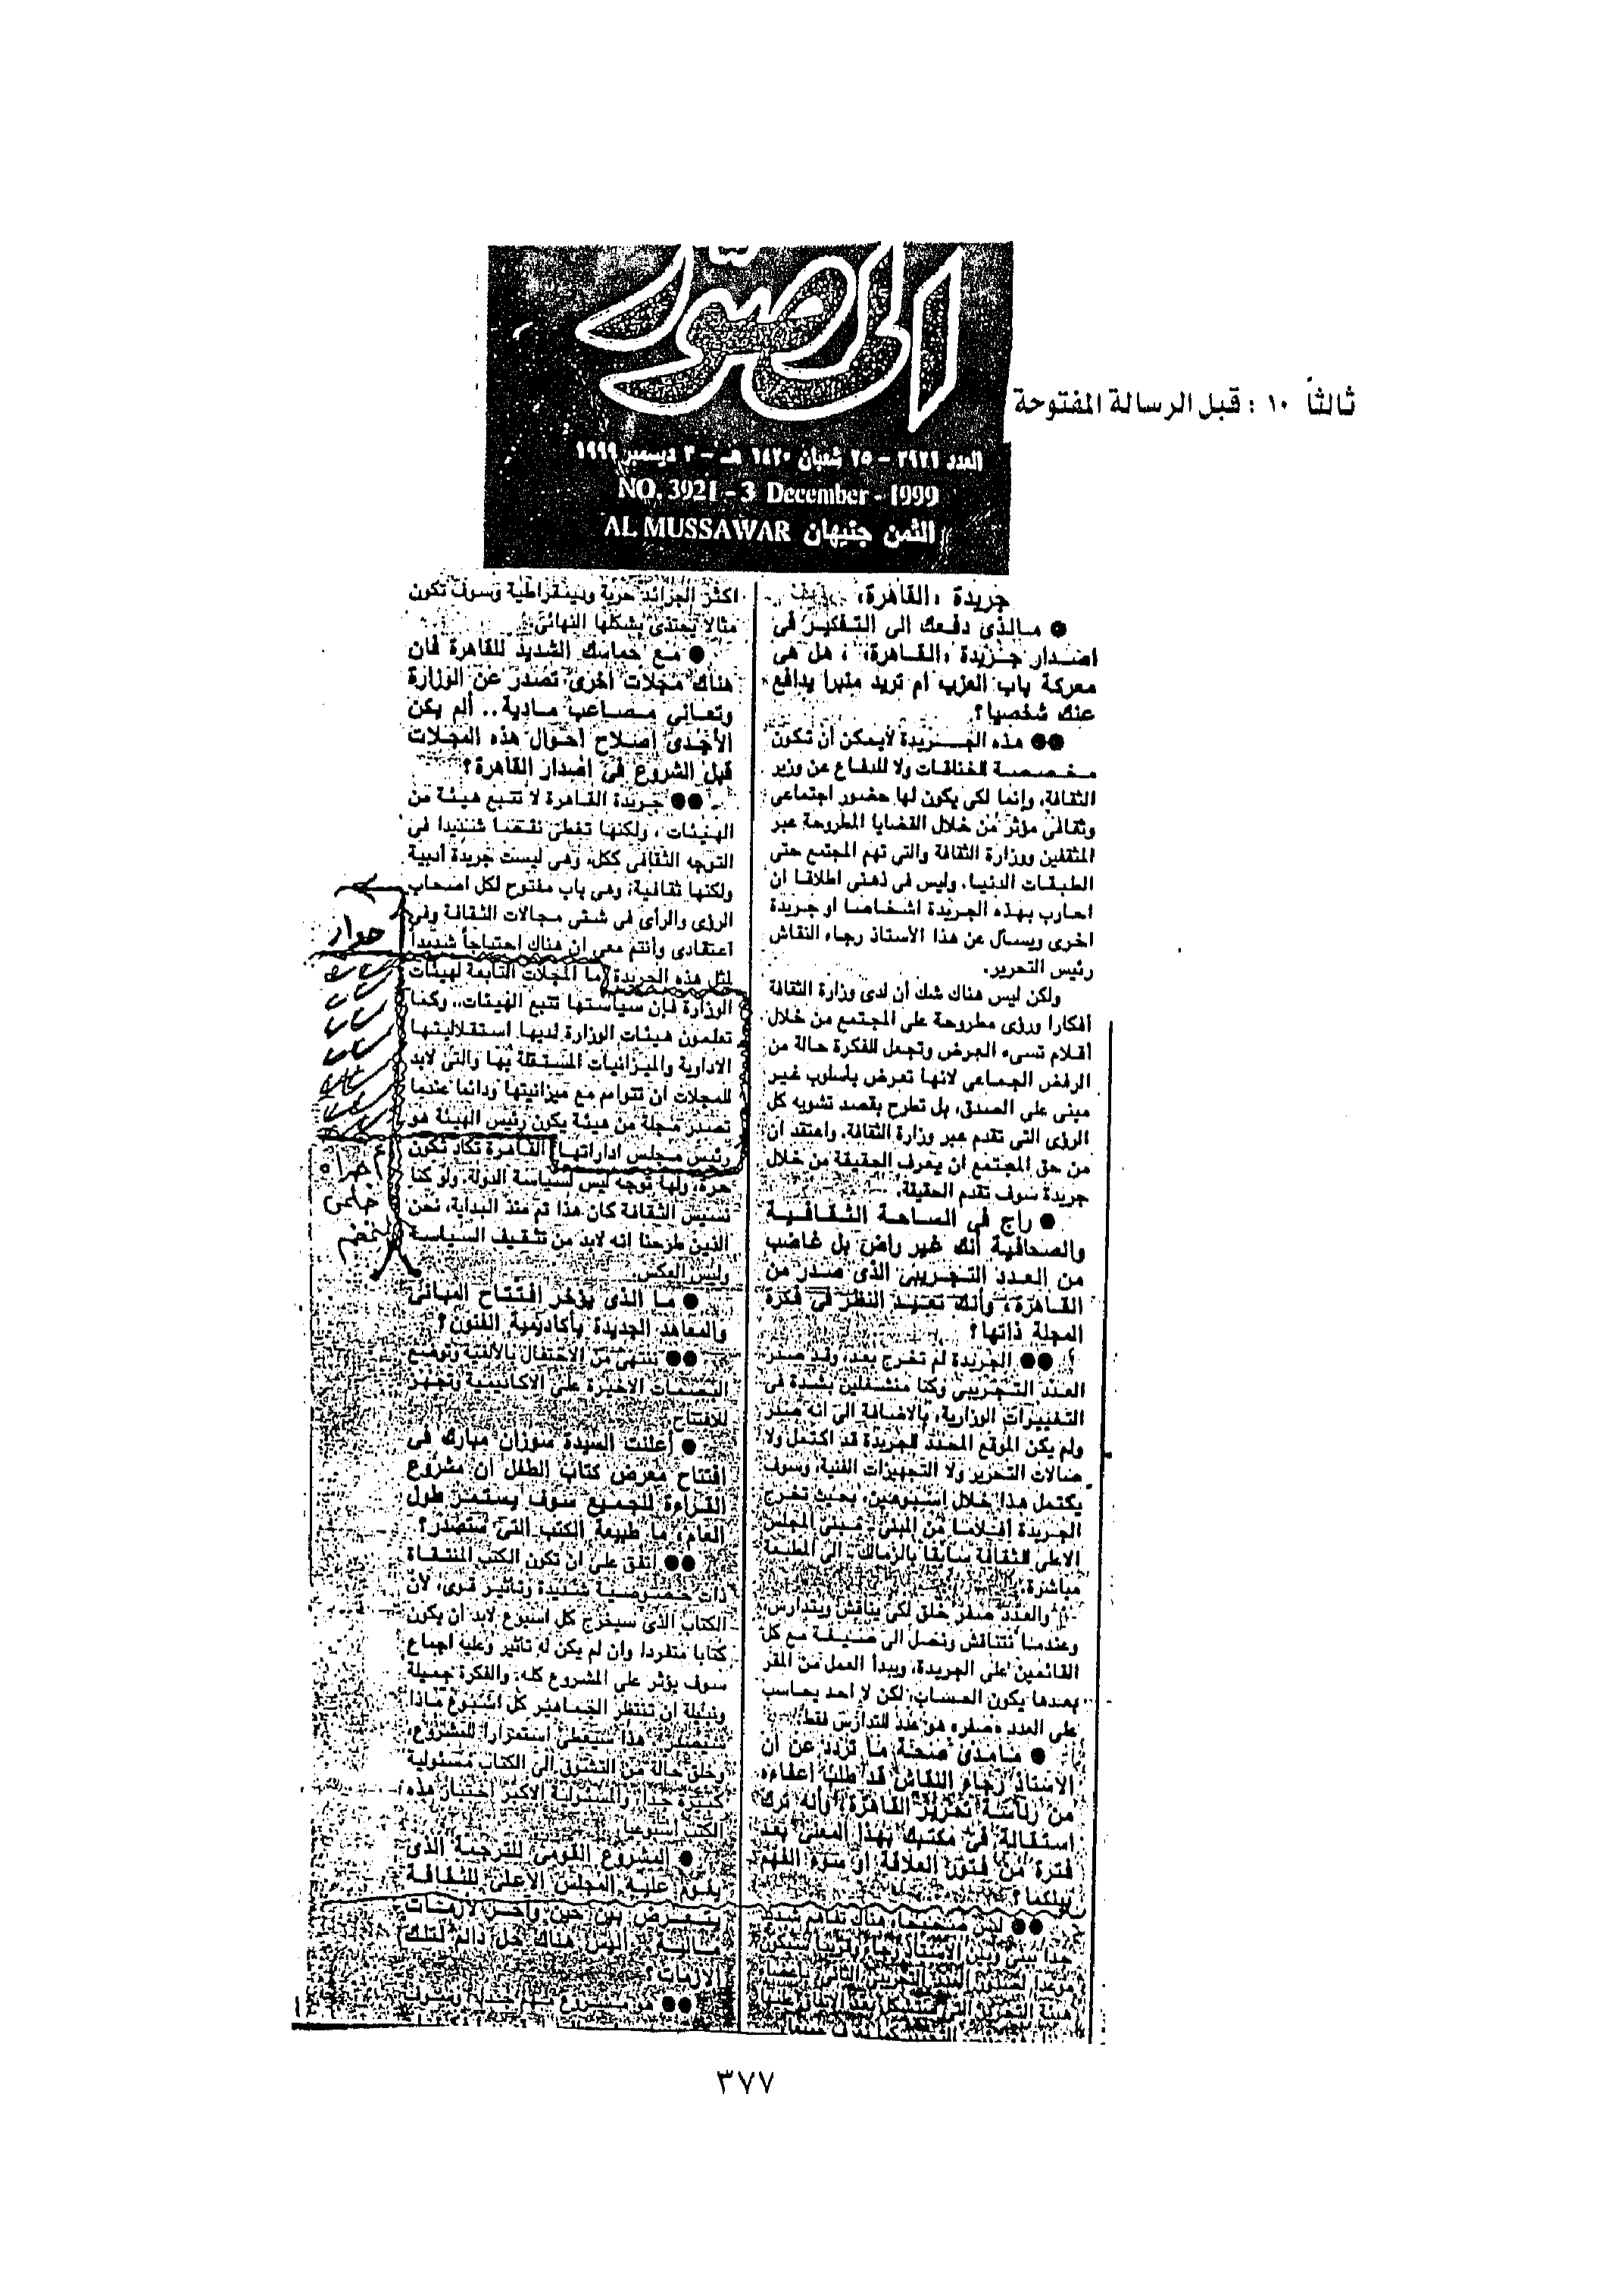 ثالثاً ١٠ : قبل الرسالة المفتوحة
المصور
العدد ٣٩٢١ - ٢٥ شعبان ١٤٢٠ هـ - ٣ ديسمبر ١٩٩٩
NO. 3921 - 3 December - 1999
الثمن جنيهان AL MUSSAWAR
جريدة «القاهرة»
● مالذى دفعك الى التفكير فى
اصدار جريدة «القاهرة» ، هل هى
معركة باب العزب أم تريد منبرا يدافع
عنك شخصيا؟
●● هذه الجريدة لايمكن أن تكون
مخصصة للخناقات ولا للدفاع عن وزير
الثقافة، وإنما لكى يكون لها حضور اجتماعى
وثقافى مؤثر من خلال القضايا المطروحة عبر
المثقفين ووزارة الثقافة والتى تهم المجتمع حتى
الطبقات الدنيا. وليس فى ذهنى اطلاقا ان
احارب بهذه الجريدة اشخاصا او جريدة
اخرى ويسأل عن هذا الأستاذ رجاء النقاش
رئيس التحرير.
ولكن ليس هناك شك أن لدى وزارة الثقافة
أفكارا ورؤى مطروحة على المجتمع من خلال
أقلام تسىء العرض وتجعل للفكرة حالة من
الرفض الجماعى لانها تعرض بأسلوب غير
مبنى على الصدق، بل تطرح بقصد تشويه كل
الرؤى التى تقدم عبر وزارة الثقافة. واعتقد ان
من حق المجتمع ان يعرف الحقيقة من خلال
جريدة سوف تقدم الحقيقة.
● راج فى الساحة الثقافية
والصحافية أنك غير راض بل غاضب
من العدد التجريبى الذى صدر من
القاهرة، وأنك تعيد النظر فى فكرة
المجلة ذاتها؟
●● الجريدة لم تخرج بعد، وقد صدر
العدد التجريبى وكنا منشغلين بشدة فى
التغييرات الوزارية، بالاضافة الى انه صدر
ولم يكن الموقع المحدد للجريدة قد اكتمل ولا
صالات التحرير ولا التجهيزات الفنية، وسوف
يكتمل هذا خلال اسبوعين، بحيث تخرج
الجريدة افلاما من المبنى - مبنى المجلس
الاعلى للثقافة سابقا بالزمالك - الى المطبعة
مباشرة.
والعدد صفر خلق لكى يناقش ويتدارس
وعندما نتناقش ونصل الى صيغة مع كل
القائمين على الجريدة، ويبدأ العمل من المقر
بعدها يكون الحساب، لكن لا احد يحاسب
على العدد «صفر» هو عدد للتدارس فقط.
● مامدى صحة ما تردد عن أن
الاستاذ رجاء النقاش قد طلب اعفاءه
من رئاسة تحرير القاهرة، وأنه ترك
استقالة فى مكتبك بهذا المعنى بعد
فترة من فتور العلاقة او سوء الفهم
بينكما؟
●● ليس صحيحا، هناك تفاهم شديد
جدا بينى وبين الاستاذ رجاء
اكثر الجرائد حرية وديمقراطية وسوف تكون
مثالا يحتذى بشكلها النهائى.
● مع حماسك الشديد للقاهرة فان
هناك مجلات أخرى تصدر عن الوزارة
وتعانى مصاعب مادية.. ألم يكن
الأجدى إصلاح أحوال هذه المجلات
قبل الشروع فى اصدار القاهرة؟
●● جريدة القاهرة لا تتبع هيئة من
الهيئات ، ولكنها تغطى نقصا شديدا فى
التوجه الثقافى ككل، وهى ليست جريدة أدبية
ولكنها ثقافية، وهى باب مفتوح لكل اصحاب
الرؤى والرأى فى شتى مجالات الثقافة وفى
اعتقادى وأنتم معى ان هناك احتياجا شديدا
لمثل هذه الجريدة أما المجلات التابعة لهيئات
الوزارة فإن سياستها تتبع الهيئات.. وكما
تعلمون هيئات الوزارة لديها استقلاليتها
الادارية والميزانيات المستقلة بها والتى لابد
للمجلات أن تتواءم مع ميزانيتها ودائما عندما
تصدر مجلة من هيئة يكون رئيس الهيئة هو
رئيس مجلس اداراتها القاهرة تكاد تكون
حرة، ولها توجه ليس لسياسة الدولة، ولو كنا
نسيس الثقافة كان هذا تم منذ البداية، نحن
الذين طرحنا انه لابد من تثقيف السياسة
وليس العكس.
● ما الذى يؤخر افتتاح المبانى
والمعاهد الجديدة بأكاديمية الفنون؟
●● ننتهى من الاحتفال بالألفية ونوضع
البصمات الاخيرة على الاكاديمية وتجهز
للافتتاح
● أعلنت السيدة سوزان مبارك فى
افتتاح معرض كتاب الطفل أن مشروع
القراءة للجميع سوف يستمر طول
العام، ما طبيعة الكتب التى ستصدر؟
●● اتفق على ان تكون الكتب المنتقاة
ذات خصوصية شديدة وتأثير قوى، لأن
الكتاب الذى سيخرج كل اسبوع لابد أن يكون
كتابا متفردا، وان لم يكن له تأثير وعليه اجماع
سوف يؤثر على المشروع كله، والفكرة جميلة
ونبيلة ان تنتظر الجماهير كل اسبوع ماذا
سيصدر، هذا سيعطى استمرارا للمشروع،
وخلق حالة من التشوق الى الكتاب مسئولية
كبيرة جدا، والمسئولية الاكبر اختيار هذه
الكتب اسبوعيا
● المشروع القومى للترجمة الذى
يقوم عليه المجلس الاعلى للثقافة
يتعرض بين حين وآخر لأزمات
مالية، أليس هناك حل دائم لتلك
الازمات؟
●● هو مشروع مهم جدا، وسوف
حوار
٣٧٧